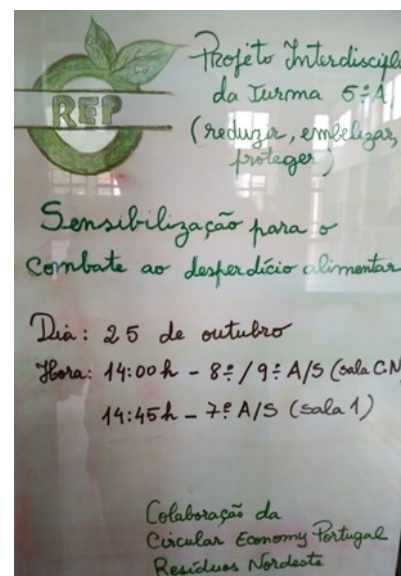 REP
Projeto Interdiscipl
da Turma 5º A
(reduzir, embelezar,
proteger)
Sensibilização para o
combate ao desperdício alimentar
Dia: 25 de outubro
Hora: 14:00 h - 8º/9º A/S (sala C.N
14:45 h - 7º A/S (sala 1)
Colaboração da
Circular Economy Portugal
Resíduos Nordeste